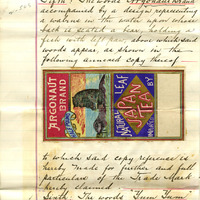 Fifth: The words "Argonaut Brand
accompanied by a design representing
a walrus in the water upon whose
back is seated a bear, holding a
fish with left paw, above which said
words appear, as shown in the
following annexed copy thereof
ARGONAUT
BRAND
LEAF
JAPAN
TEA
BY
to which said copy reference is
hereby made for further and full
particulars of the Trade Mark
hereby claimed
Sixth: The words "Yum Yum"